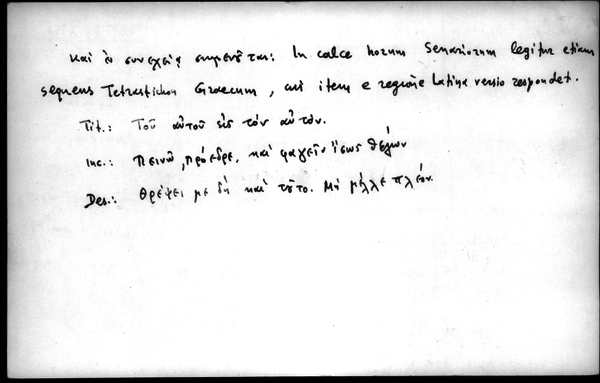 καὶ ὁ συνεχεῖς In calce horum Senariorum legitur etiam
sequens Tetrastichon Graecum, cui item e regione Latina versio respondet.
Tit.: Τοῦ αὐτοῦ εἰς τὸν αὐτόν.
Inc.: Πεινῶ, πρόεδρε, καὶ φαγεῖν ἴσως θέλων
Des.: θρέψει με δὴ καὶ τοῦτο. Μὴ μέλλε πλέον.